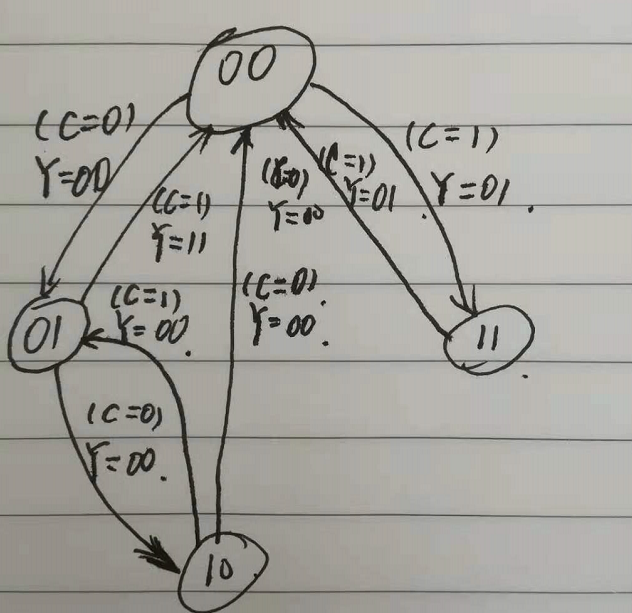 00
(C=0)
Y=00
(C=1)
Y=01.
(C=1)
Y=11
Y=00
(C=1)
Y=01
01
(C=1)
Y=00.
(C=0)
Y=00.
11
(C=0)
Y=00.
10